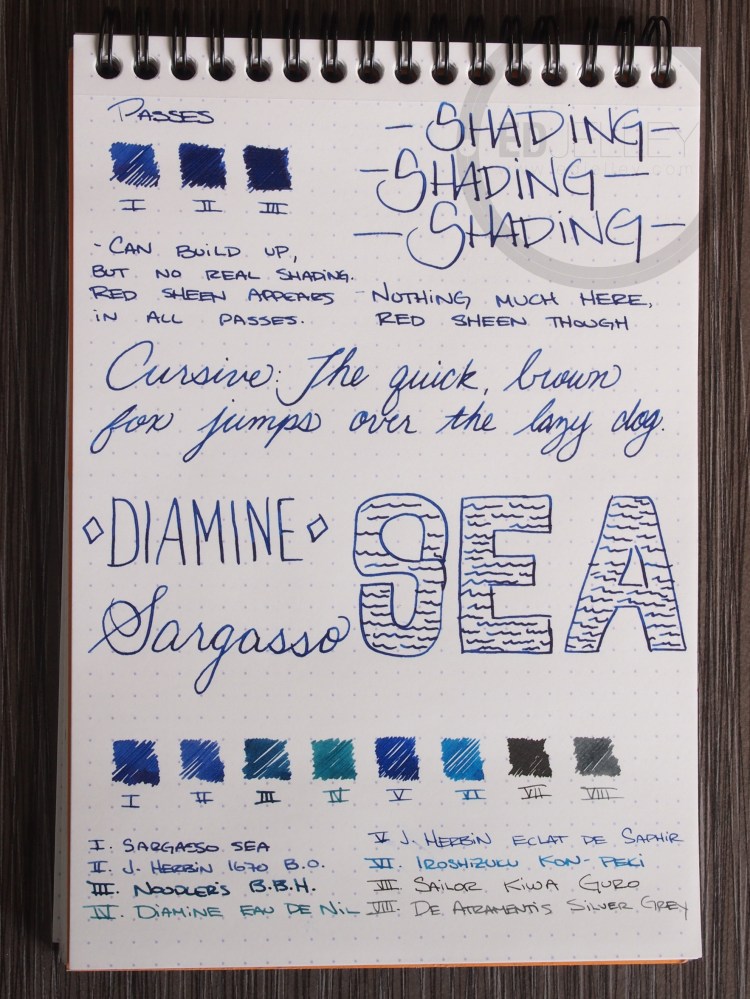 PASSES
I II III
- CAN BUILD UP,
BUT NO REAL SHADING.
RED SHEEN APPEARS
IN ALL PASSES.
- SHADING -
- SHADING -
- SHADING -
- NOTHING MUCH HERE,
RED SHEEN THOUGH
Cursive: The quick, brown
fox jumps over the lazy dog.
◇ DIAMINE ◇
Sargasso
SEA
I II III IV V VI VII VIII
I: SARGASSO SEA
II: J. HERBIN 1670 B.O.
III: NOODLER'S B.B.H.
IV: DIAMINE EAU DE NIL
V J. HERBIN ECLAT DE SAPHIR
VI: IROSHIZUKU KON-PEKI
VIII: SAILOR KIWA GURO
VIII: DE ATRAMENTIS SILVER GREY